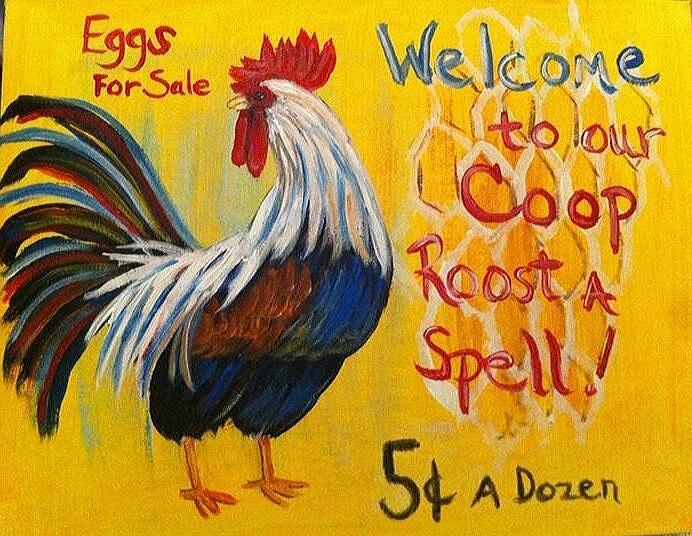 Eggs
For Sale
Welcome
to our
Coop
Roost A
Spell!
5¢ A Dozen